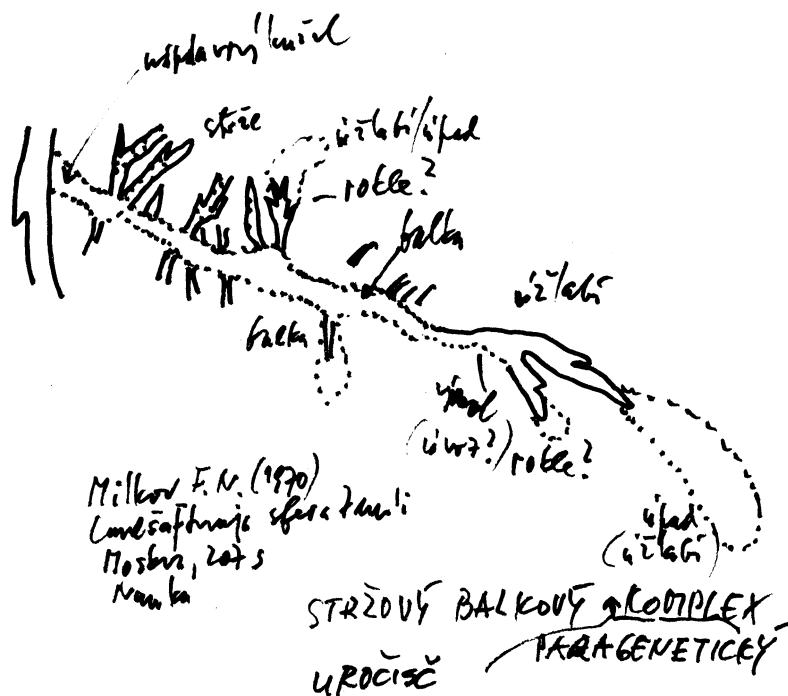 výplavový kužel
strže
úžlabí/úpad
rokle?
balka
úžlabí
balka
(úvoz?)
rokle?
úpad
(úžlabí)
Milkov F.N. (1970)
sfera Zemli
Moskva, 207 s
Nauka
STRŽOVÝ BALKOVÝ KOMPLEX
PARAGENETICKÝ
UROČIŠČ